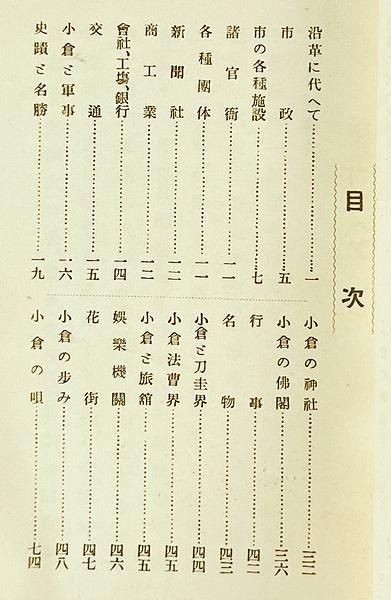 目次
沿革に代へて……………一
市政……………五
市の各種施設……………七
諸官衙……………一一
各種團体……………一一
新聞社……………一二
商工業……………一二
會社、工場、銀行……………一四
交通……………一五
小倉と軍事……………一六
史蹟と名勝……………一九
小倉の神社……………三二
小倉の佛閣……………三六
行事……………四二
名物……………四三
小倉と刀圭界……………四四
小倉法曹界……………四五
小倉と旅舘……………四五
娯樂機關……………四六
花街……………四七
小倉の歩み……………四八
小倉の唄……………七四